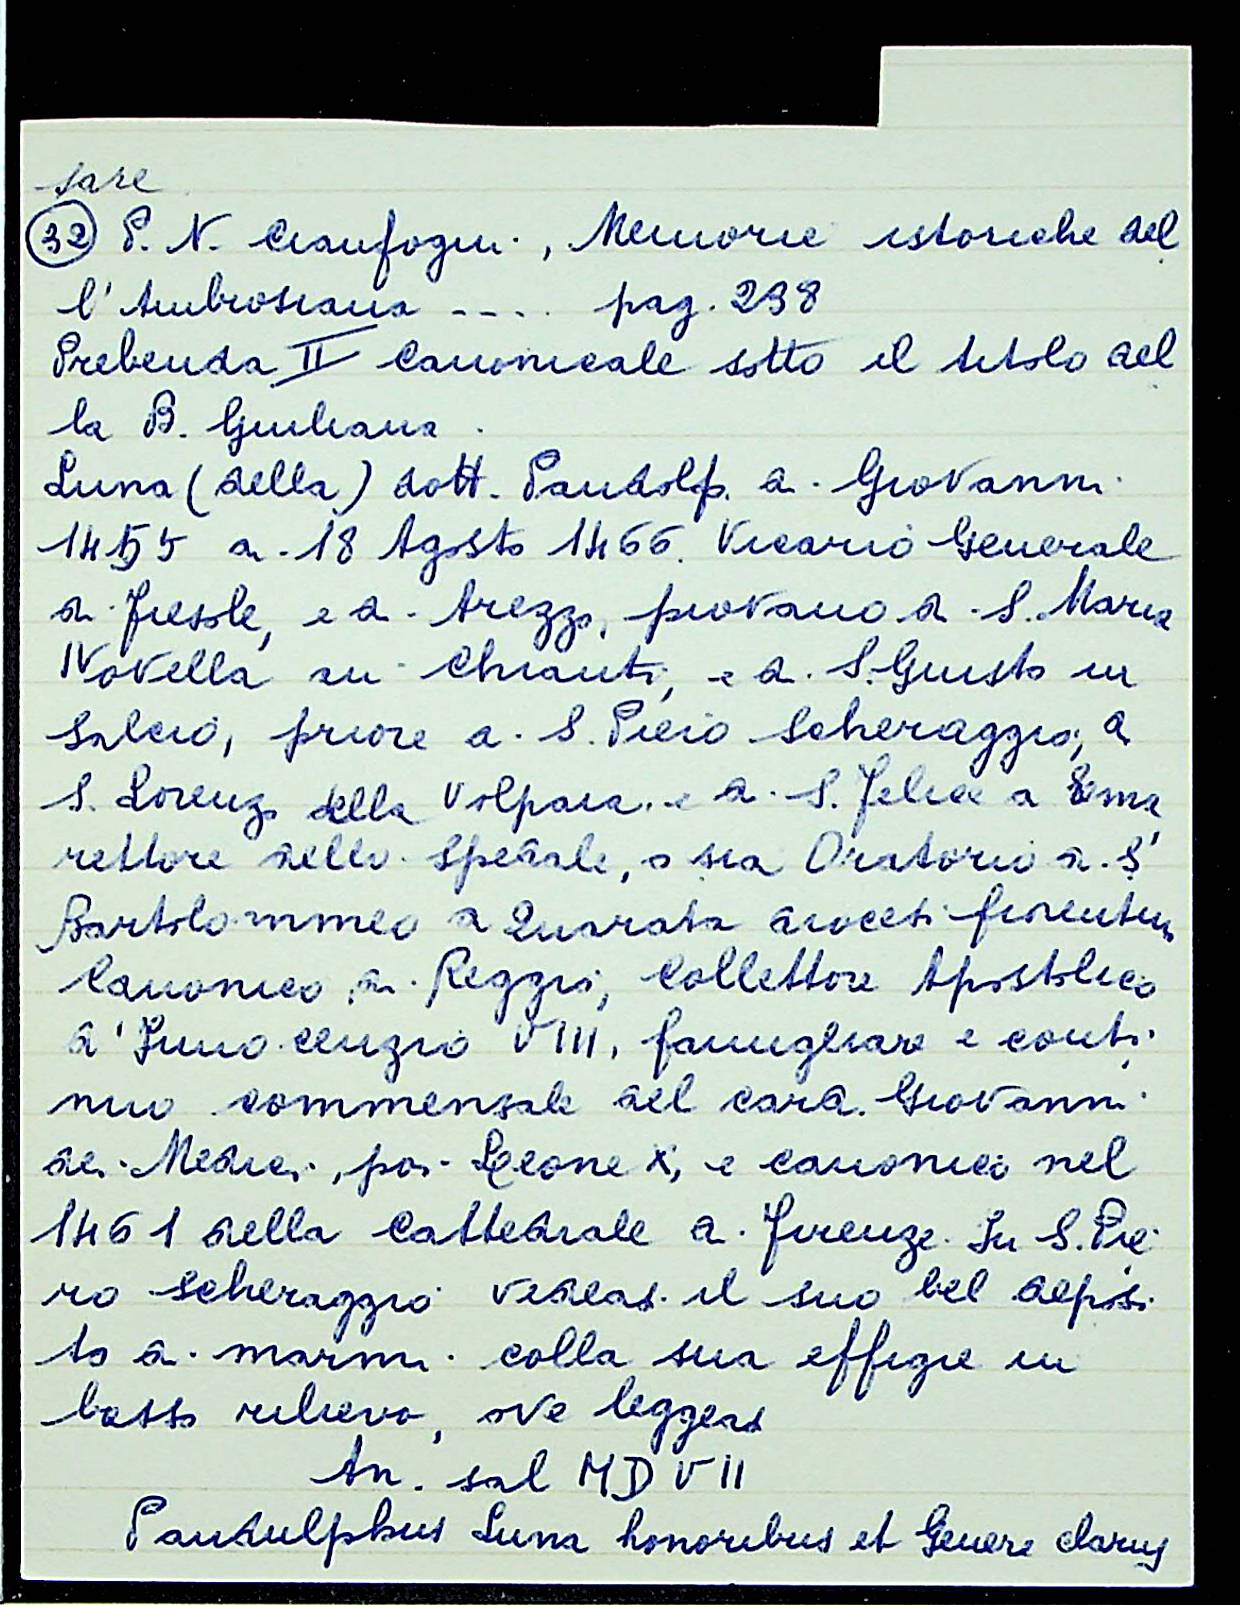 sare
32 P. N. Cianfogni, Memorie istoriche del
l'Ambrosiana .... pag. 298
Prebenda II Canonicale sotto il titolo del
la B. Giuliana.
Luna (della) dott. Pandolf. di Giovanni
1455 a. 18 Agosto 1466. Vicario Generale
di Fiesole, e di Arezzo, piovano di S. Maria
Novella in Chianti, e di S. Giusto in
Salcio, priore di S. Piero Scheraggio, di
S. Lorenzo della Volpaia e di S. Felice a Ema
rettore dello Spedale, o sia Oratorio di S.
Bartolommeo a Quarata diocesi fiorentin
Canonico di Reggio, Collettore Apostolico
d'Innocenzio VIII, famigliare e conti
nuo commensale del card. Giovanni
dei Medici, poi Leone X, e canonico nel
1461 della Cattedrale di Firenze. In S. Pie
ro Scheraggio vedeasi il suo bel deposi
to di marmi colla sua effigie in
basso rilievo, ove leggeasi
An. sal MDVII
Pandulphus Luna honoribus et Genere clarus